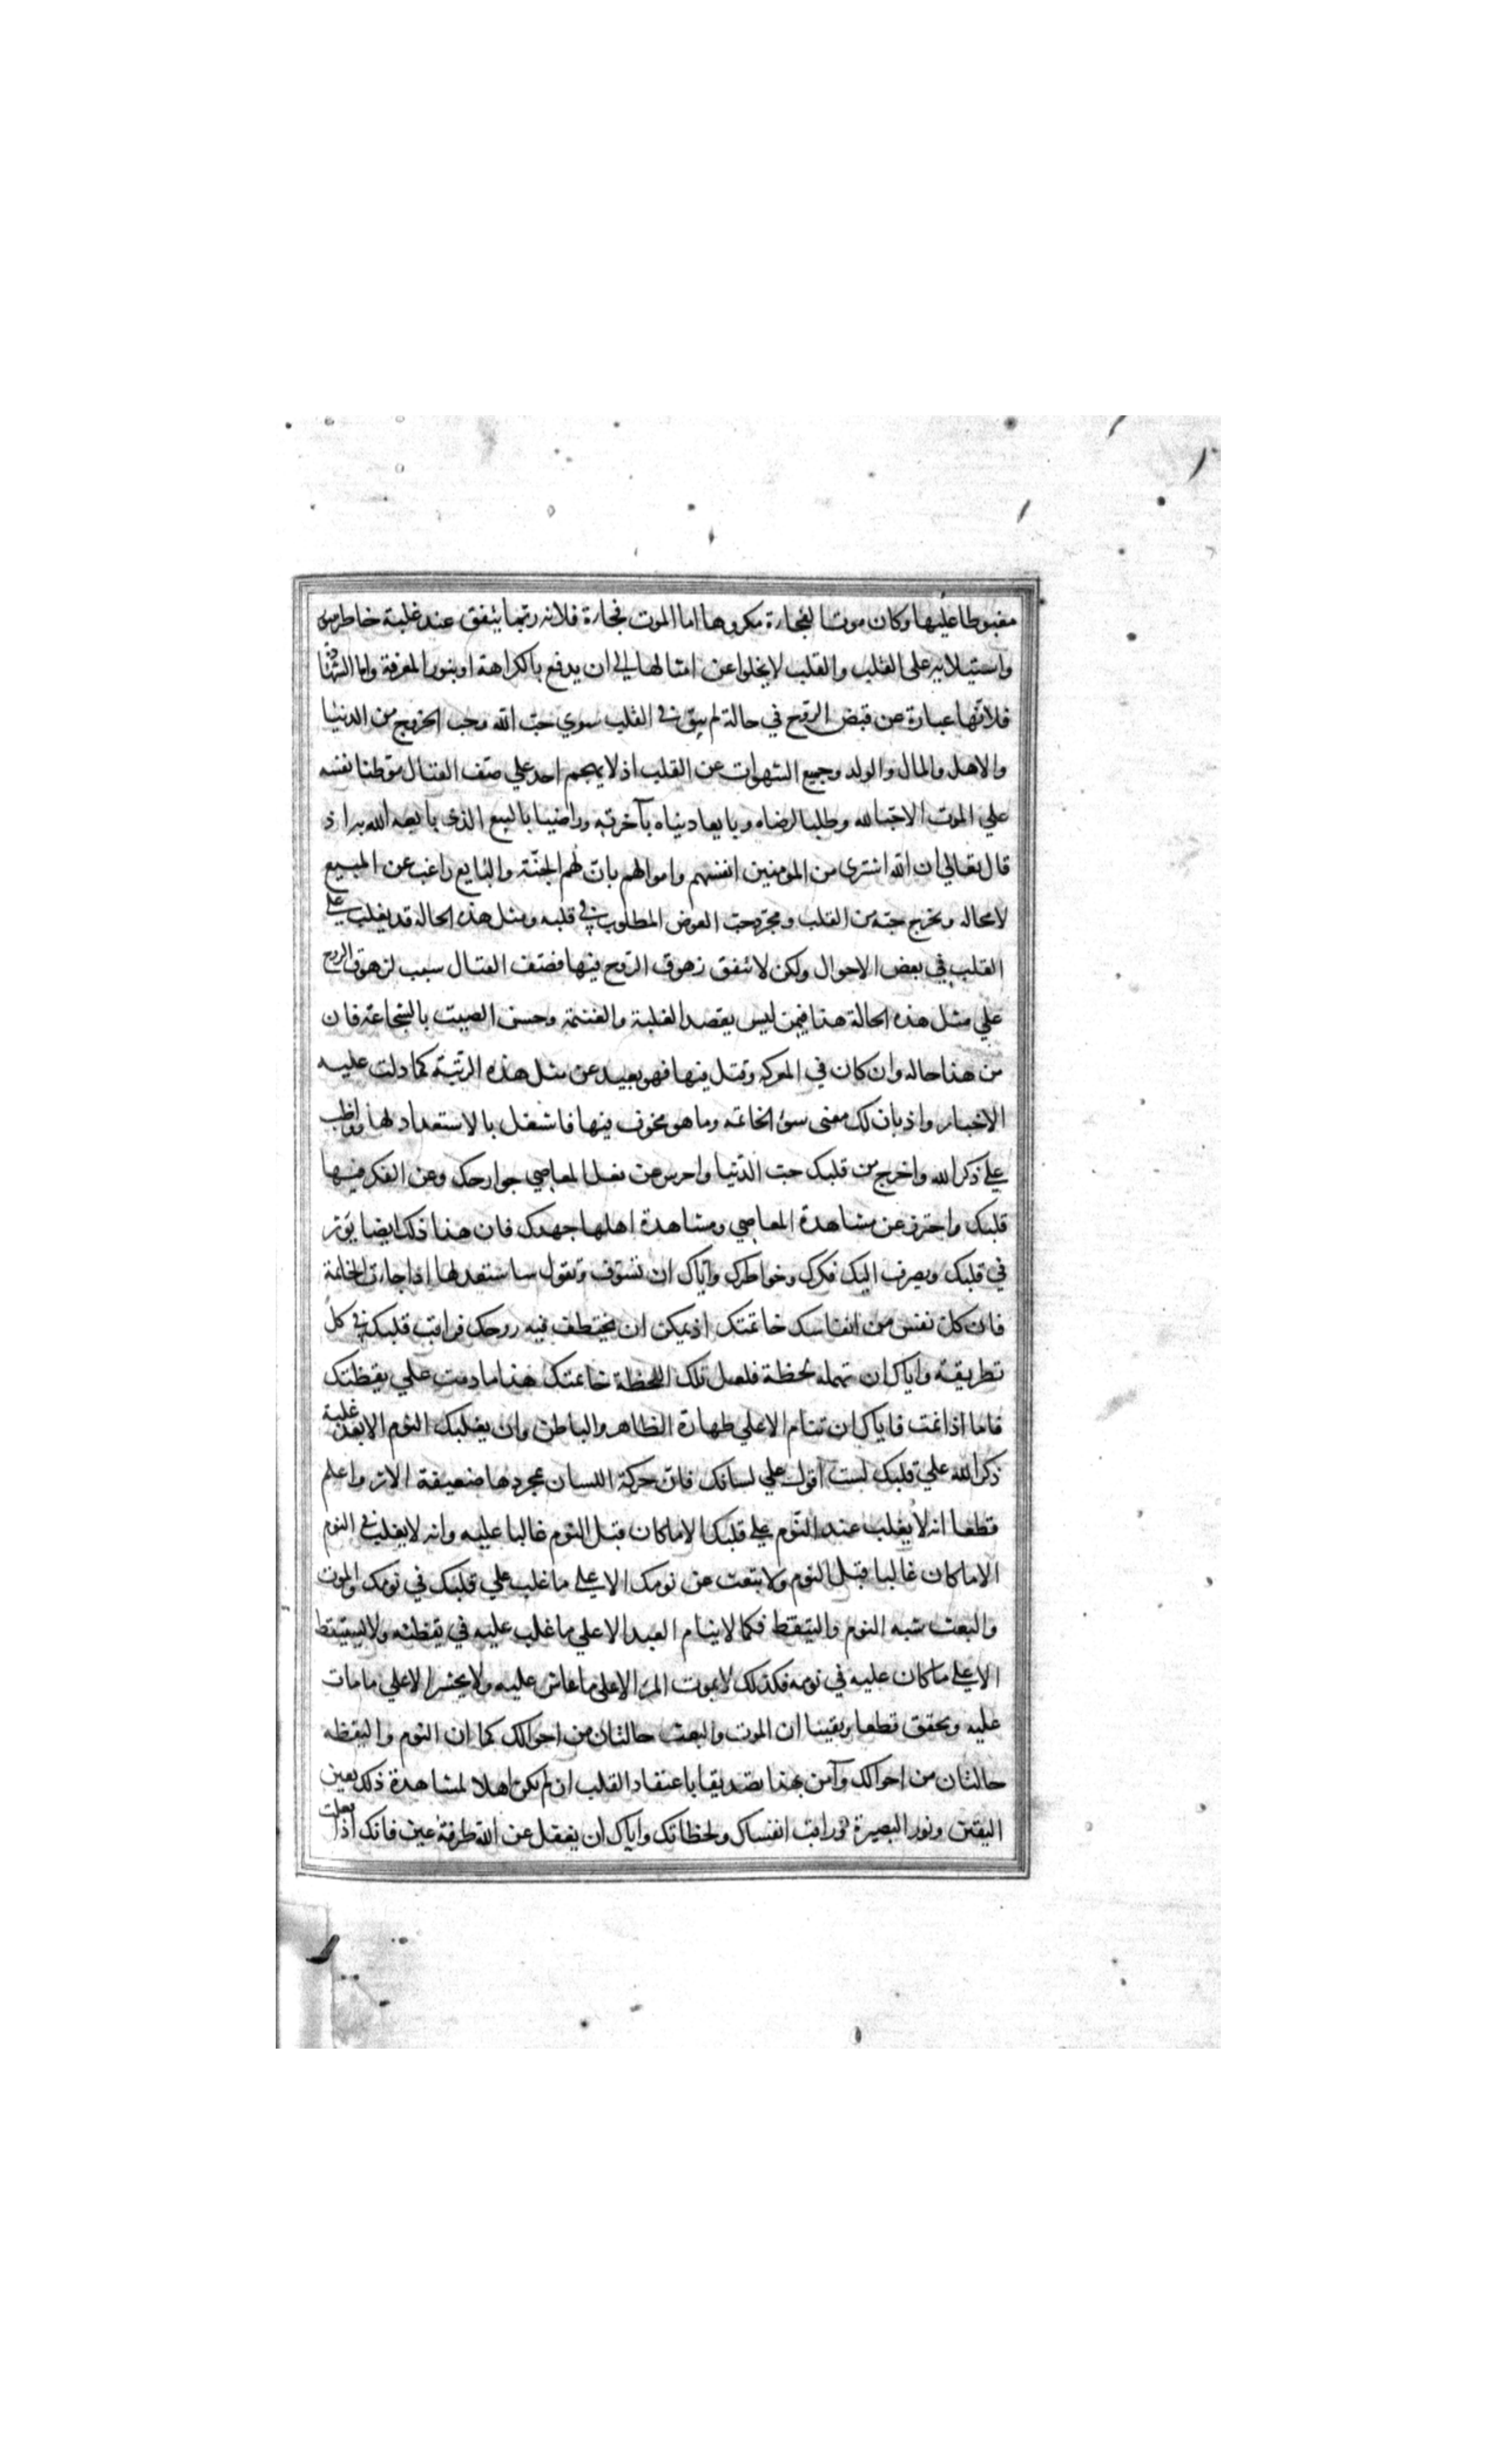 مغبوطا عليها وكان موت الفجاءة مكروها اما الموت فجاءة فلانه ربما يتفق عند غلبة خاطر سوء
واستيلائه على القلب والقلب لا يخلوا عن امثالها الى ان يدفع بالكراهة او بنور المعرفة واما الشهادة
فلانها عبارة عن قبض الروح في حالة لم يبق في القلب سوي حب الله وحب الخروج من الدنيا
والاهل والمال والولد وجميع الشهوات عن القلب اذ لا يهجم احد علي صف القتال موطنا نفسه
علي الموت الا حبا لله وطلبا لرضاه وبايعا دنياه بآخرته وراضيا بالبيع الذي بايعه الله به اذ
قال تعالي ان الله اشترى من المومنين انفسهم واموالهم بان لهم الجنة والبايع راغب عن المبيع
لا محاله ويخرج حبه من القلب ومجرد حب العوض المطلوب في قلبه ومثل هذه الحالة قد يغلب علي
القلب في بعض الاحوال ولكن لا يتفق زهوق الروح فيها فصف القتال سبب لزهوق الروح
علي مثل هذه الحالة هذا فيمن ليس يقصد الغلبة والغنيمة وحسن الصيت بالشجاعة فان
من هذا حاله وان كان في المعركه وقتل فيها فهو بعيد عن مثل هذه الرتبة كما دلت عليه
الاخبار واذ بان لك معنى سوء الخاتمه وما هو مخوف فيها فاشغل بالاستعداد لها فواظب
علي ذكر الله واخرج من قلبك حب الدنيا واحرس عن فعل المعاصي جوارحك وعن الفكر فيها
قلبك واحترز عن مشاهدة المعاصي ومشاهدة اهلها جهدك فان هذا ذلك ايضا يوثر
في قلبك ويصرف اليك فكرك وخواطرك واياك ان تسوف وتقول ساستعد لها اذا جاءت الخاتمة
فان كل نفس من انفاسك خاتمتك اذ يمكن ان يختطف فيه روحك فراقب قلبك في كل
تطريقه واياك ان تهمله لحظة فلعل تلك اللحظة خاتمتك هذا ما دمت علي يقظتك
فاما اذا نمت فاياك ان تنام الا علي طهارة الظاهر والباطن وان يغلبك النوم الا بعد غلبة
ذكر الله علي قلبك لست اقول علي لسانك فان حركة اللسان بمجردها ضعيفة الاثر واعلم
قطعا انه لا يغلب عند النوم علي قلبك الا ما كان قبل النوم غالبا عليه وانه لا يغلب في النوم
الا ما كان غالبا قبل النوم ولا يبتعث عن نومك الا علي ما غلب علي قلبك في نومك والموت
والبعث شبه النوم واليقظ فكما لا ينام العبد الا علي ما غلب عليه في يقظته ولا يستيقظ
الا علي ما كان عليه في نومه فكذلك لا يموت المرء الا علي ما عاش عليه ولا يحشر الا علي ما مات
عليه وتحقق قطعا ويقينا ان الموت والبعث حالتان من احوالك كما ان النوم واليقظه
حالتان من احوالك وآمن بهذا تصديقا باعتقاد القلب ان لم تكن اهلا لمشاهدة ذلك بعين
اليقين ونور البصيرة وراقب انفسك ولحظاتك واياك ان يغفل عن الله طرفة عين فانك اذا فعلت